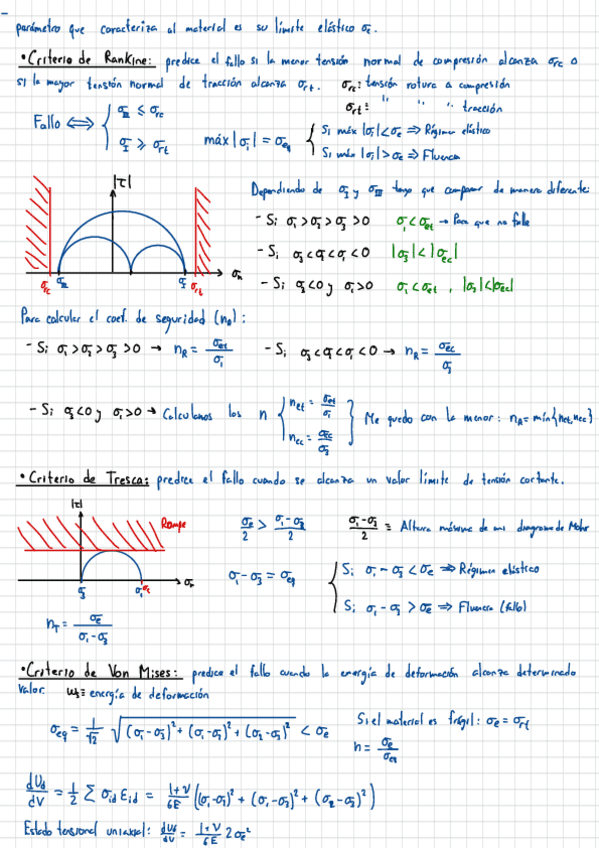 parámetro que caracteriza al material es su límite elástico σe.
• Criterio de Rankine: predice el fallo si la menor tensión normal de compresión alcanza σrc o
si la mayor tensión normal de tracción alcanza σrt. σrc: tensión rotura a compresión
σrt: " " " tracción
Fallo ⟺ { σIII ≤ σrc
σI ≥ σrt
máx|σi| = σeq { Si máx|σi| < σe ⇒ Régimen elástico
Si máx|σi| > σe ⇒ Fluencia
|τ|
σrc σIII σI σrt σn
Dependiendo de σI y σIII tengo que comparar de manera diferente:
- Si σ1 > σ2 > σ3 > 0 σ1 < σet → Para que no falle
- Si σ3 < σ2 < σ1 < 0 |σ3| < |σec|
- Si σ3 < 0 y σ1 > 0 σ1 < σet, |σ3| < |σec|
Para calcular el coef. de seguridad (nR):
- Si σ1 > σ2 > σ3 > 0 → nR = σet/σ1 - Si σ3 < σ2 < σ1 < 0 → nR = σec/σ3
- Si σ3 < 0 y σ1 > 0 → Calculamos los n { net = σet/σ1
nec = σec/σ3 } Me quedo con la menor: nR = mín{net, nec}
• Criterio de Tresca: predice el fallo cuando se alcanza un valor límite de tensión cortante.
|τ|
Rompe
σ3 σ1 σe σn
σe/2 > (σ1-σ3)/2 (σ1-σ3)/2 ≡ Altura máxima de mi diagrama de Mohr
σ1-σ3 = σeq { Si σ1-σ3 < σe ⇒ Régimen elástico
Si σ1-σ3 > σe ⇒ Fluencia (fallo)
nT = σe/(σ1-σ3)
• Criterio de Von Mises: predice el fallo cuando la energía de deformación alcanza determinado
valor. ≡ energía de deformación
σeq = 1/√2 √((σ1-σ2)²+(σ1-σ3)²+(σ2-σ3)²) < σe
Si el material es frágil: σe = σrt
n = σe/σeq
dUd/dV = 1/2 Σ σid εid = (1+ν)/6E ((σ1-σ2)²+(σ1-σ3)²+(σ2-σ3)²)
Estado tensional uniaxial: dUd/dV = (1+ν)/6E 2σe²